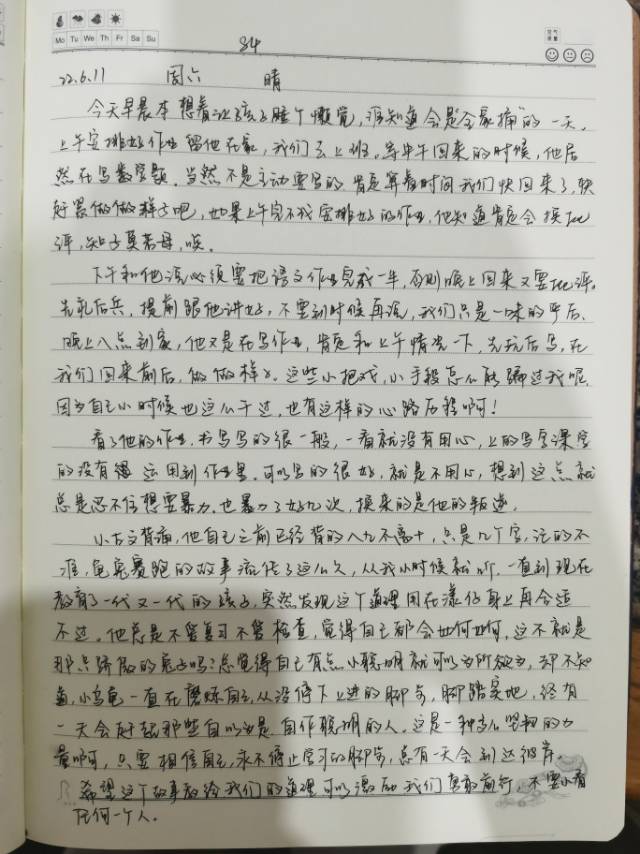 Mo Tu We Th Fr Sa Su
84
22.6.11 周六 晴
今天早晨本想着让孩子睡个懒觉,谁知道会是"全家痛"的一天,
上午安排好作业留他在家,我们去上班。等中午回来的时候,他居
然在写数学题,当然不是主动要写的,肯定算着时间我们快回来了,就
好罢做做样子吧,如果上午完不成安排好的作业,他知道肯定会挨批
评,知子莫若母,唉。
下午和他说必须要把语文作业完成一半,否则晚上回来又要批评。
先礼后兵,提前跟他讲好,不要到时候再说,我们只是一味的严厉,
晚上八点到家,他又是在写作业,肯定和上午情况一下,先玩后写,在
我们回来前后,做做样子。这些小把戏,小手段怎么能骗过我呢,
因为自己小时候也这么干过,也有这样的心路历程啊!
看了他的作业,书写写的很一般,一看就没有用心,上的写字课学
的没有 运用到作业里。可以写的很好,就是不用心,想到这点就
总是忍不住想要暴力。也暴力了好几次,换来的是他的叛逆。
小古文背诵,他自己之前已经背的八九不离十,只是几个字,记的不
准,龟兔赛跑的故事流传了这么久,从我小时候就听,一直到现在
教育了一代又一代的孩子,突然发现这个道理用在漾仔身上再合适
不过。他总是不管复习不管检查,觉得自己都会如何如何,这不就是
那只骄傲的兔子吗?总觉得自己有点小聪明就可以为所欲为,却不知
道,小乌龟一直在磨炼自己,从没停下上进的脚步,脚踏实地,终有
一天会赶超那些自以为是,自作聪明的人。这是一种多么坚韧的力
量啊,只要相信自己,永不停止学习的脚步,总有一天会到达彼岸。
希望这个故事教给我们的道理可以激励我们勇敢前行,不要小看
任何一个人。